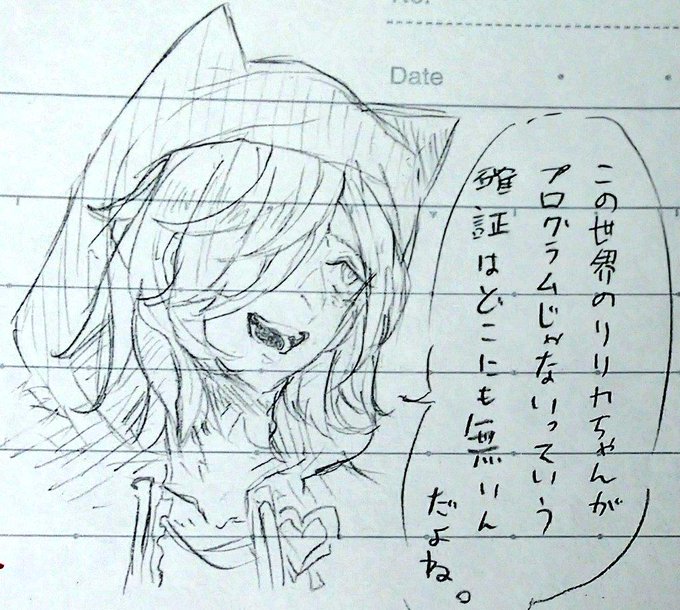 No.
Date
この世界のリリカちゃんが
プログラムじゃないっていう
確証はどこにも無いん
だよね。